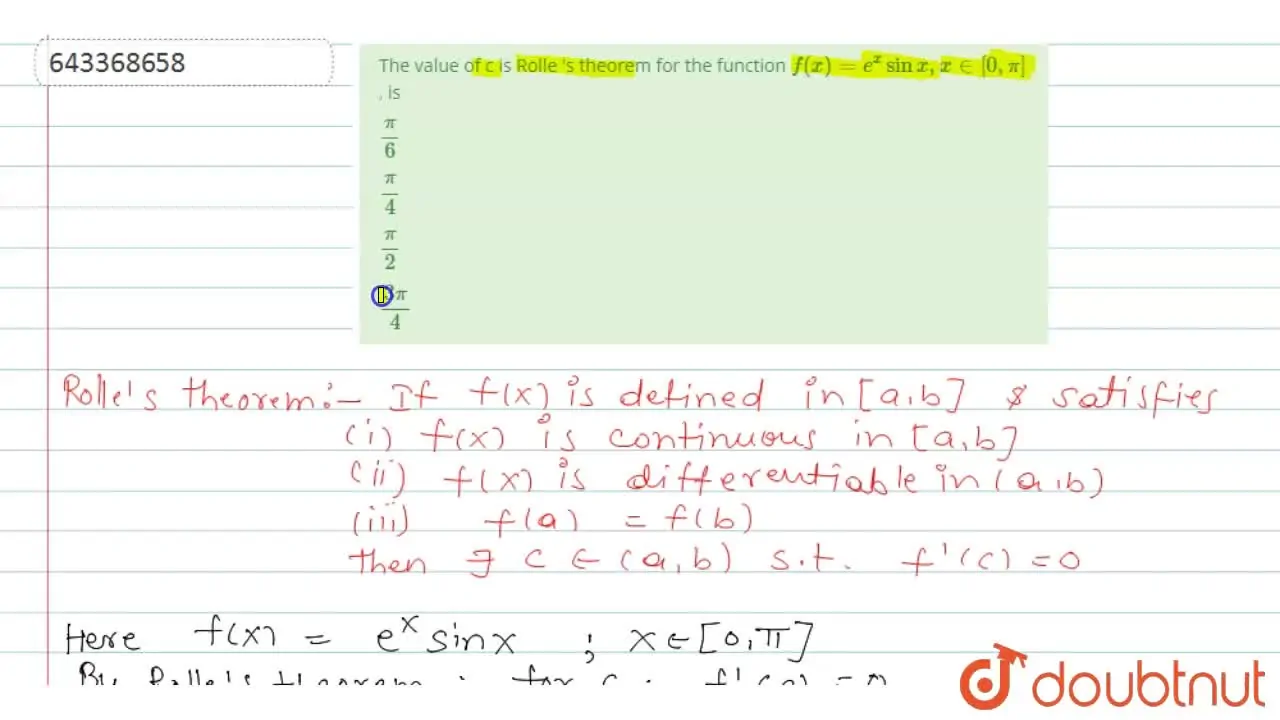 643368658
The value of c is Rolle 's theorem for the function f(x) = e^x sin x, x ∈ [0, π]
, is
π/6
π/4
π/2
3π/4
Rolle's theorem:- If f(x) is defined in [a,b] & satisfies
(i) f(x) is continuous in [a,b]
(ii) f(x) is differentiable in (a,b)
(iii) f(a) = f(b)
then ∃ c ∈ (a,b) s.t. f'(c) = 0
Here f(x) = e^x sinx ; x ∈ [0,π]
By Rolle's theorem
doubtnut